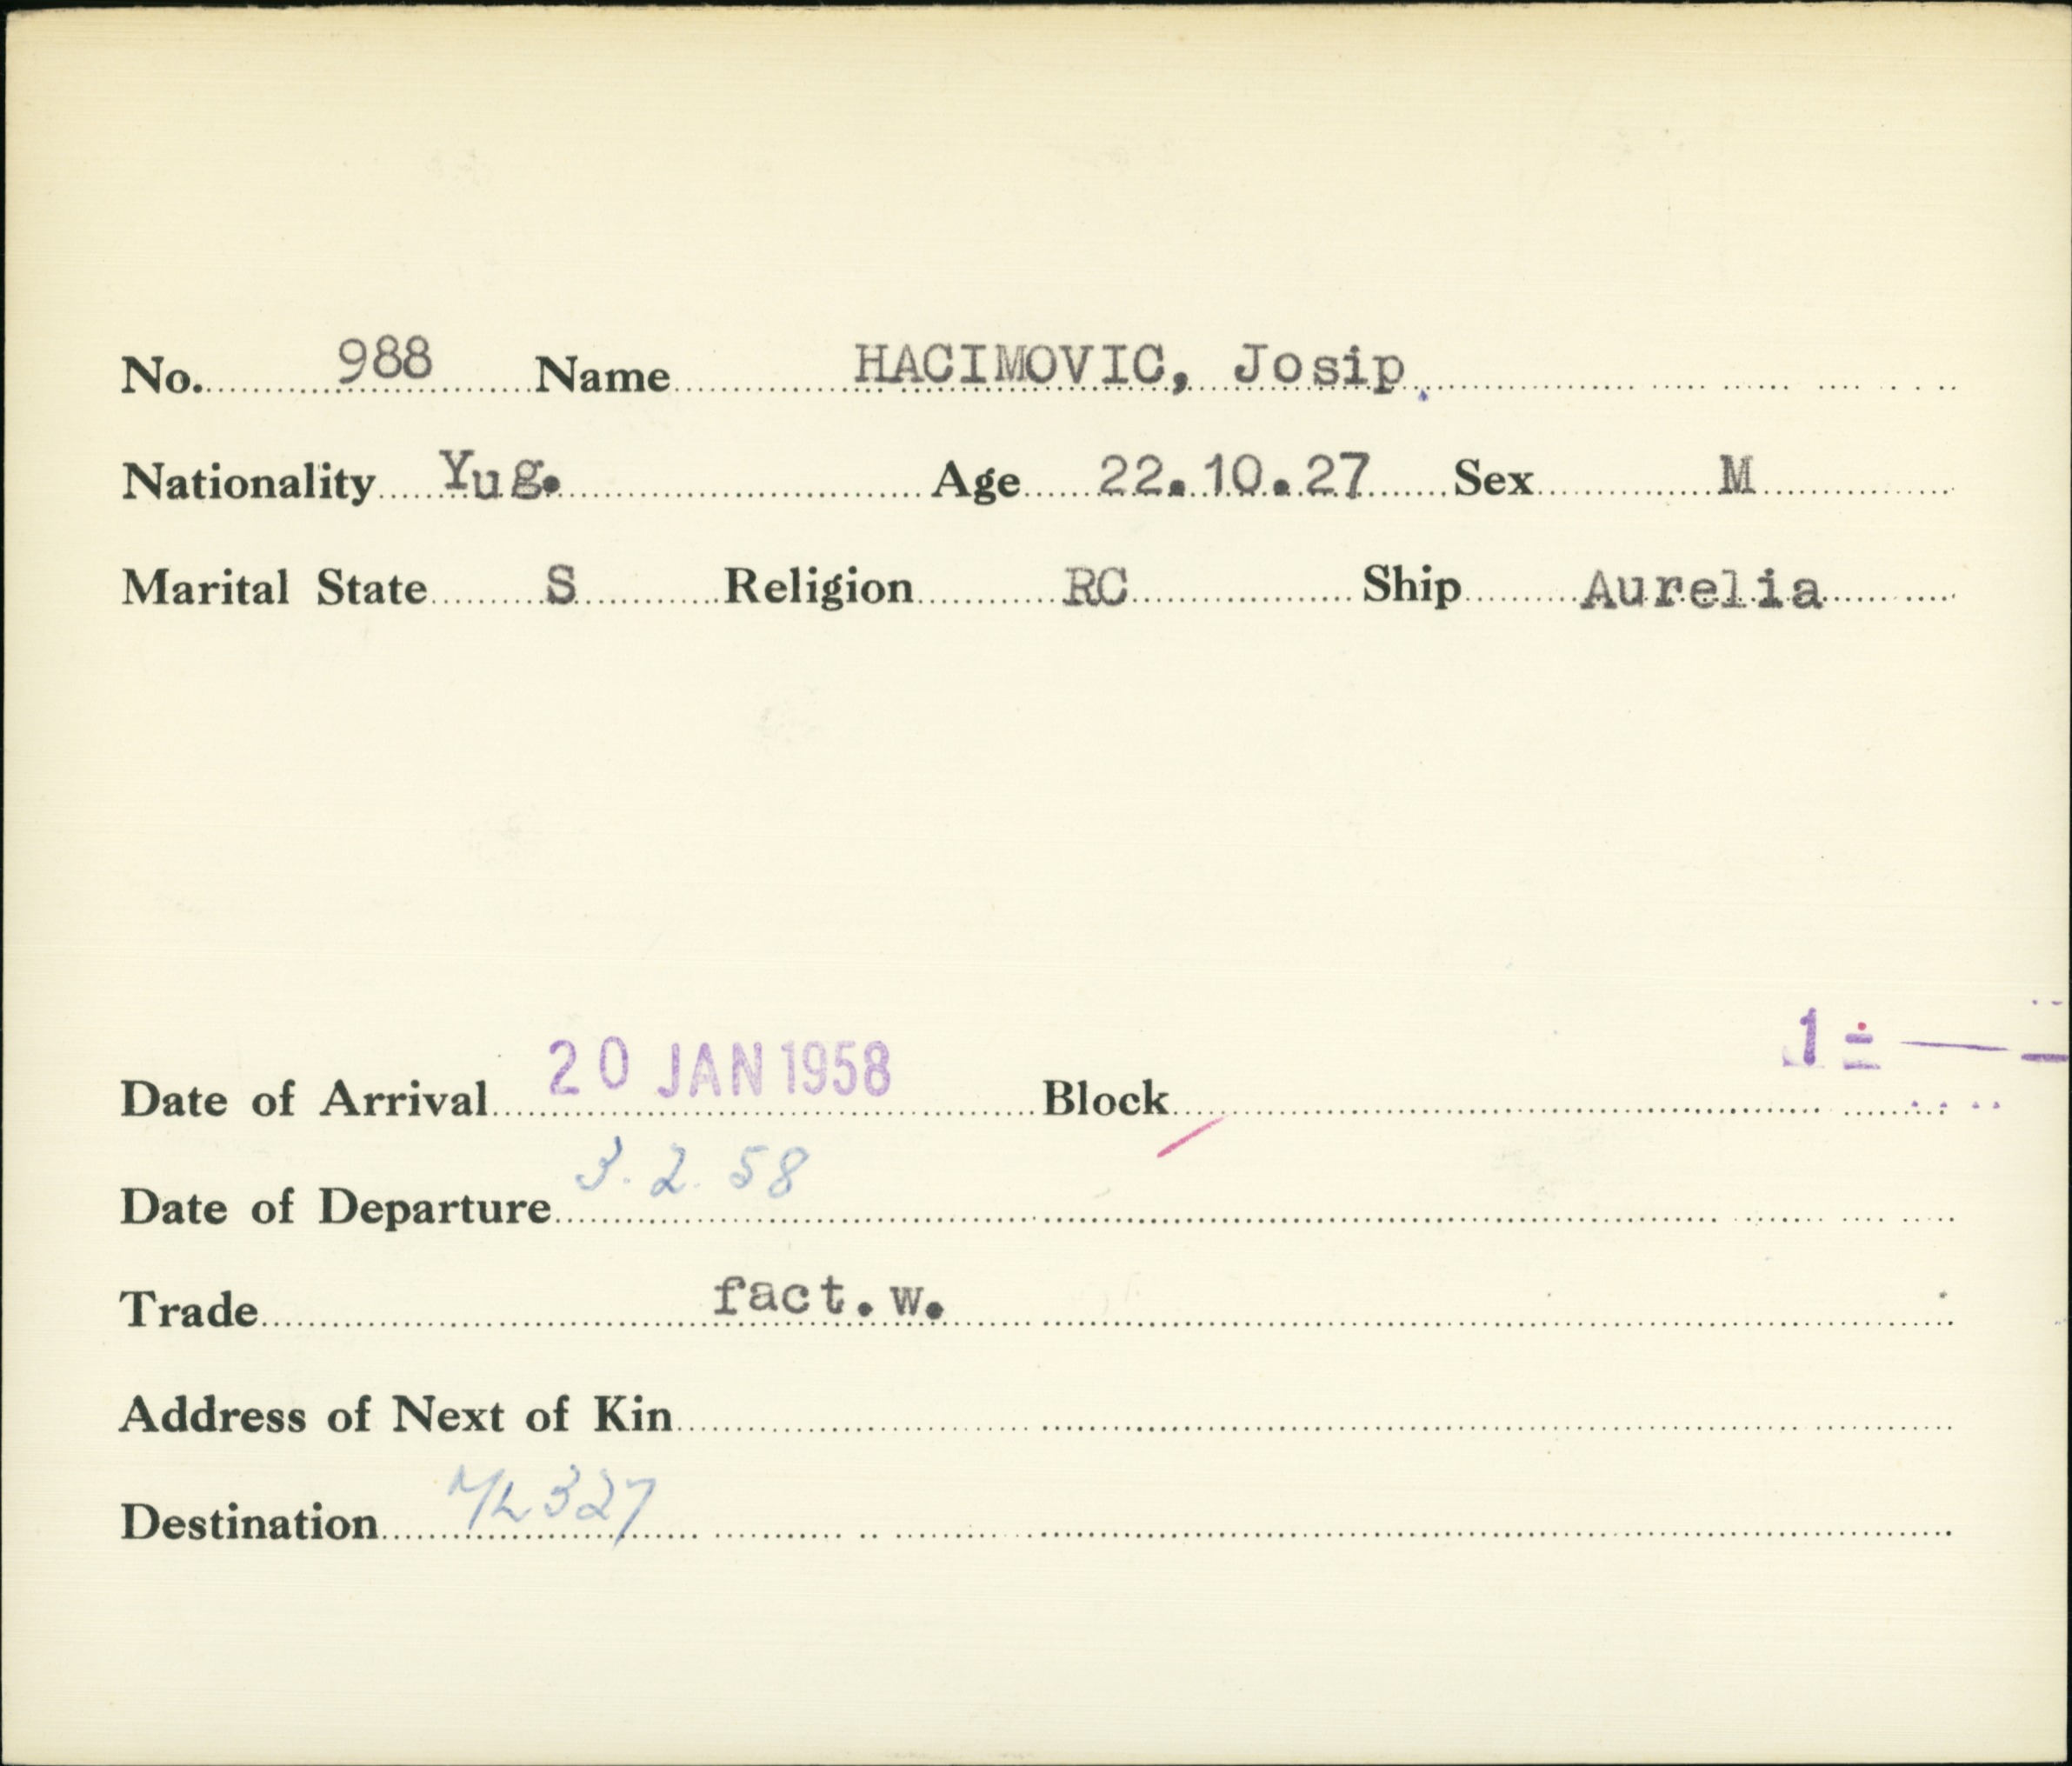 No. 988 Name HACIMOVIC, Josip.
Nationality Yug. Age 22.10.27 Sex M
Marital State S Religion RC Ship Aurelia
Date of Arrival 20 JAN 1958 Block
Date of Departure 3.2.58
Trade fact.w.
Address of Next of Kin
Destination 327